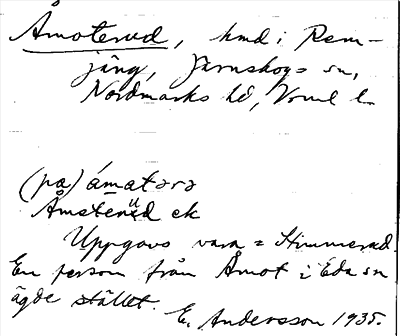 Åmoterud, hmd i Rem-
jäng, Järnskogs sn,
Nordmarks hd, Vrml l.
(på) ámatərə
Åmsterud ek
Uppgavs vara = Stimmerud.
En person från Åmot i Eda sn
ägde stället. E. Andersson 1935.